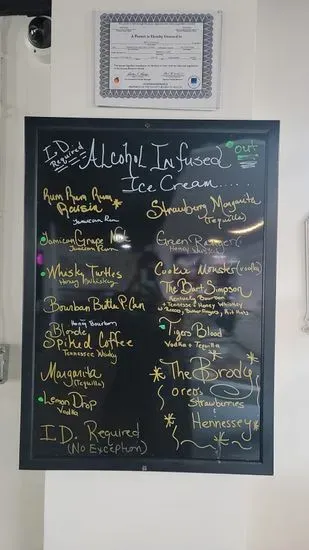 A Permit is Hereby Granted to
I.D. Required
Alcohol Infused
out
Ice Cream.....
Rum Rum Rum
Raisin
Jamaican Rum
Jamican Grape Nut
Jamaican Rum
Whisky Turtles
Honey Whiskey
Bourban Butter P.Can
Honey Bourbon
Blonde
Spiked Coffee
Tennessee Whisky
Margarita
(Tequilla)
Lemon Drop
Vodka
I.D. Required
(No Exception)
Strawberry Margarita
(Tequilla)
Green Rangers
Honey Whisky
Cookie Monster (Vodka)
The Bart Simpson
Kentucky Bourbon
+ Tennessee Honey Whiskey
Tigers Blood
Vodka + Tequilla
The Brody
oreo's
Strawberries
+
Hennessey